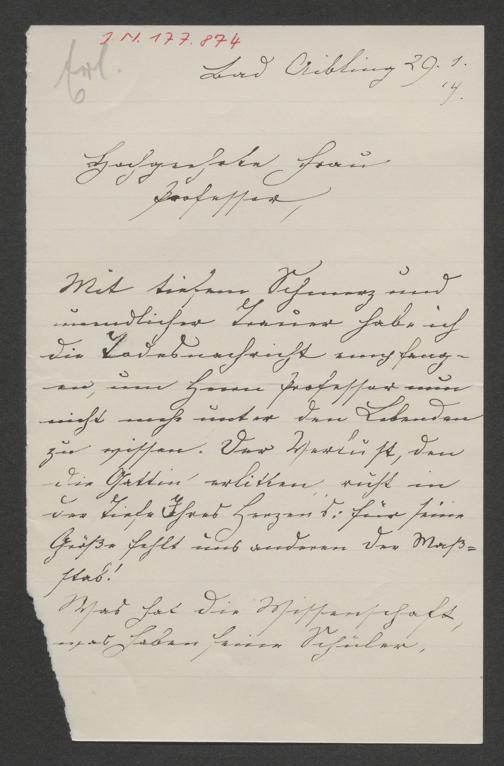 J.N. 177.874
Erl.
Bad Aibling 29. 1.
14.
Hochgeehrte Frau
Professor,
Mit tiefem Schmerz und
unendlicher Trauer habe ich
die Todesnachricht empfang-
en, um Herrn Professor nun
nicht mehr unter den Lebenden
zu wissen. Der Verlust, den
die Gattin erlitten, ruht in
der Tiefe Ihres Herzens: für seine
Größe fehlt uns anderen der Maß=
stab!
Was hat die Wissenschaft,
was haben seine Schüler,